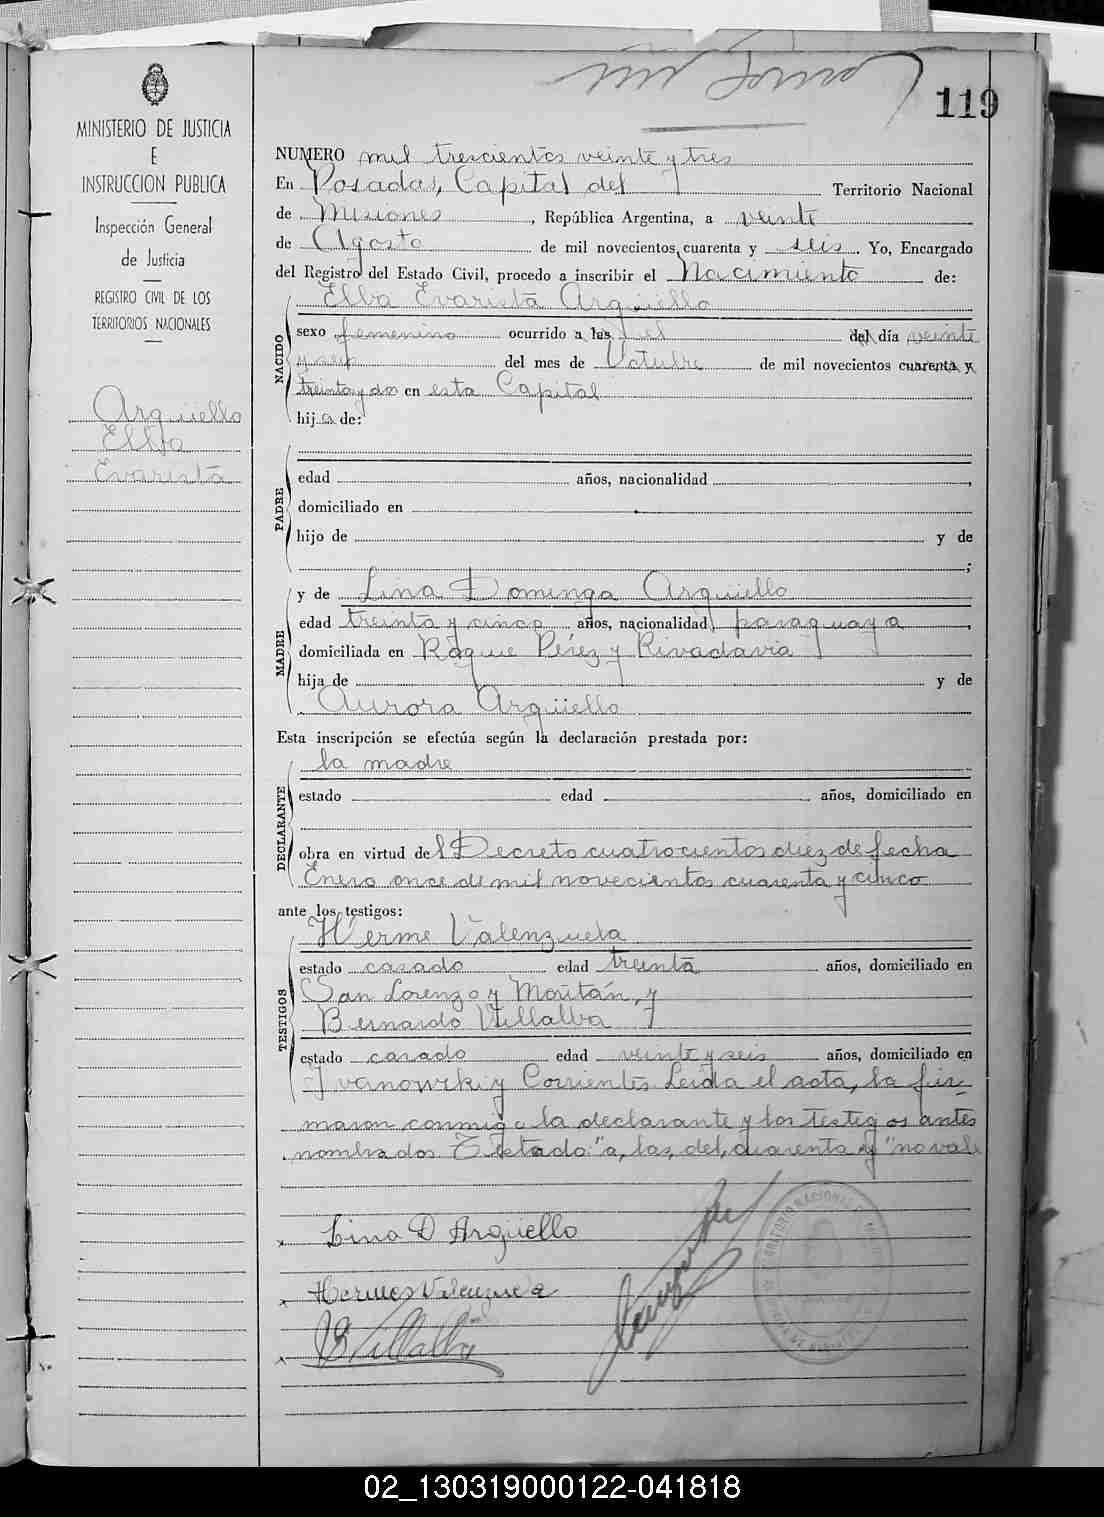 119
MINISTERIO DE JUSTICIA
E
INSTRUCCION PUBLICA
Inspección General
de Justicia
REGISTRO CIVIL DE LOS
TERRITORIOS NACIONALES
Argüello
Elba
Evarista
NUMERO mil trescientos veinte y tres
En Posadas, Capital del Territorio Nacional
de Misiones, República Argentina, a veinte
de Agosto de mil novecientos cuarenta y seis. Yo, Encargado
del Registro del Estado Civil, procedo a inscribir el Nacimiento de:
Elba Evarista Argüello
NACIDO
sexo femenino ocurrido a las el del día veinte
y seis del mes de Octubre de mil novecientos cuarenta y
treinta y dos en esta Capital
hija de:
PADRE
edad años, nacionalidad
domiciliado en
hijo de y de
;
MADRE
y de Lina Dominga Argüello
edad treinta y cinco años, nacionalidad paraguaya
domiciliada en Roque Pérez y Rivadavia
hija de y de
Aurora Argüello
Esta inscripción se efectúa según la declaración prestada por:
DECLARANTE
la madre
estado edad años, domiciliado en
obra en virtud del Decreto cuatrocientos diez de fecha
Enero once de mil novecientos cuarenta y cinco
ante los testigos:
TESTIGOS
Herme Valenzuela
estado casado edad treinta años, domiciliado en
San Lorenzo y Moritán, y
Bernardo Villalba
estado casado edad veinte y seis años, domiciliado en
Ivanowski y Corrientes Leida el acta, la fir-
maron conmigo la declarante y los testigos antes
nombrados Testado: "a, las, del, cuarenta y" no vale
Lina D Argüello
Hermes Valenzuela
B Villalba
02_130319000122-041818